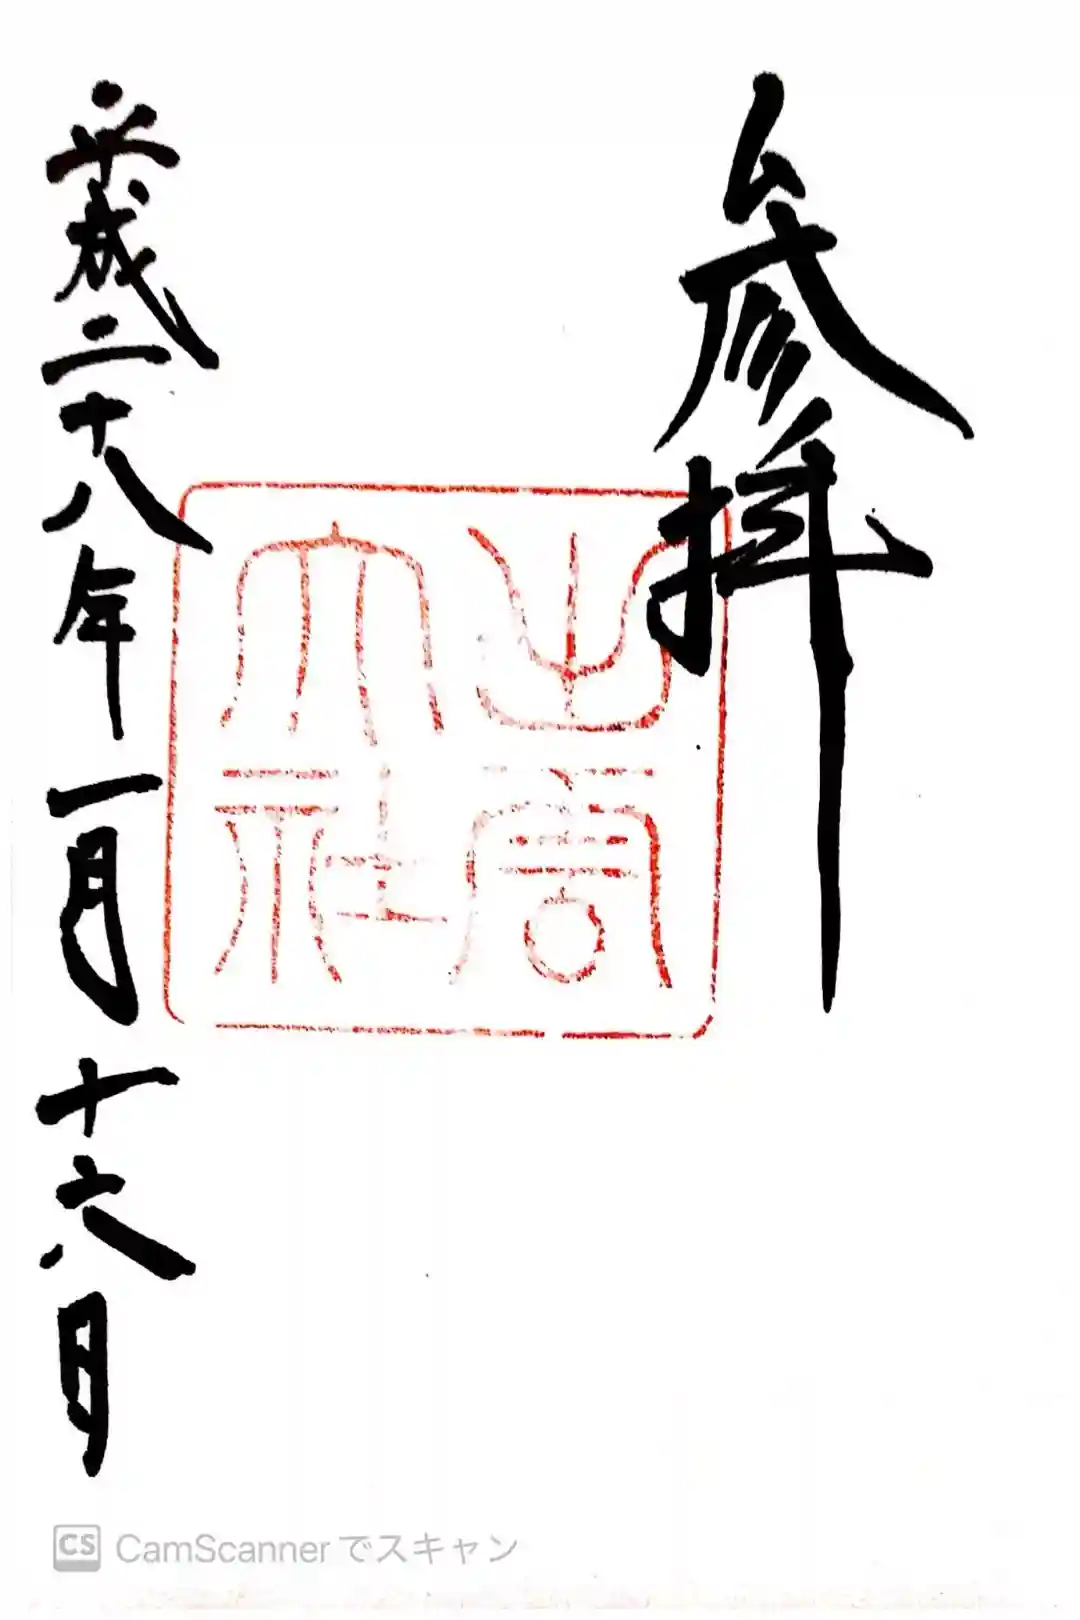 参拝
出雲大社
平成二十八年一月十六日
CS CamScannerでスキャン